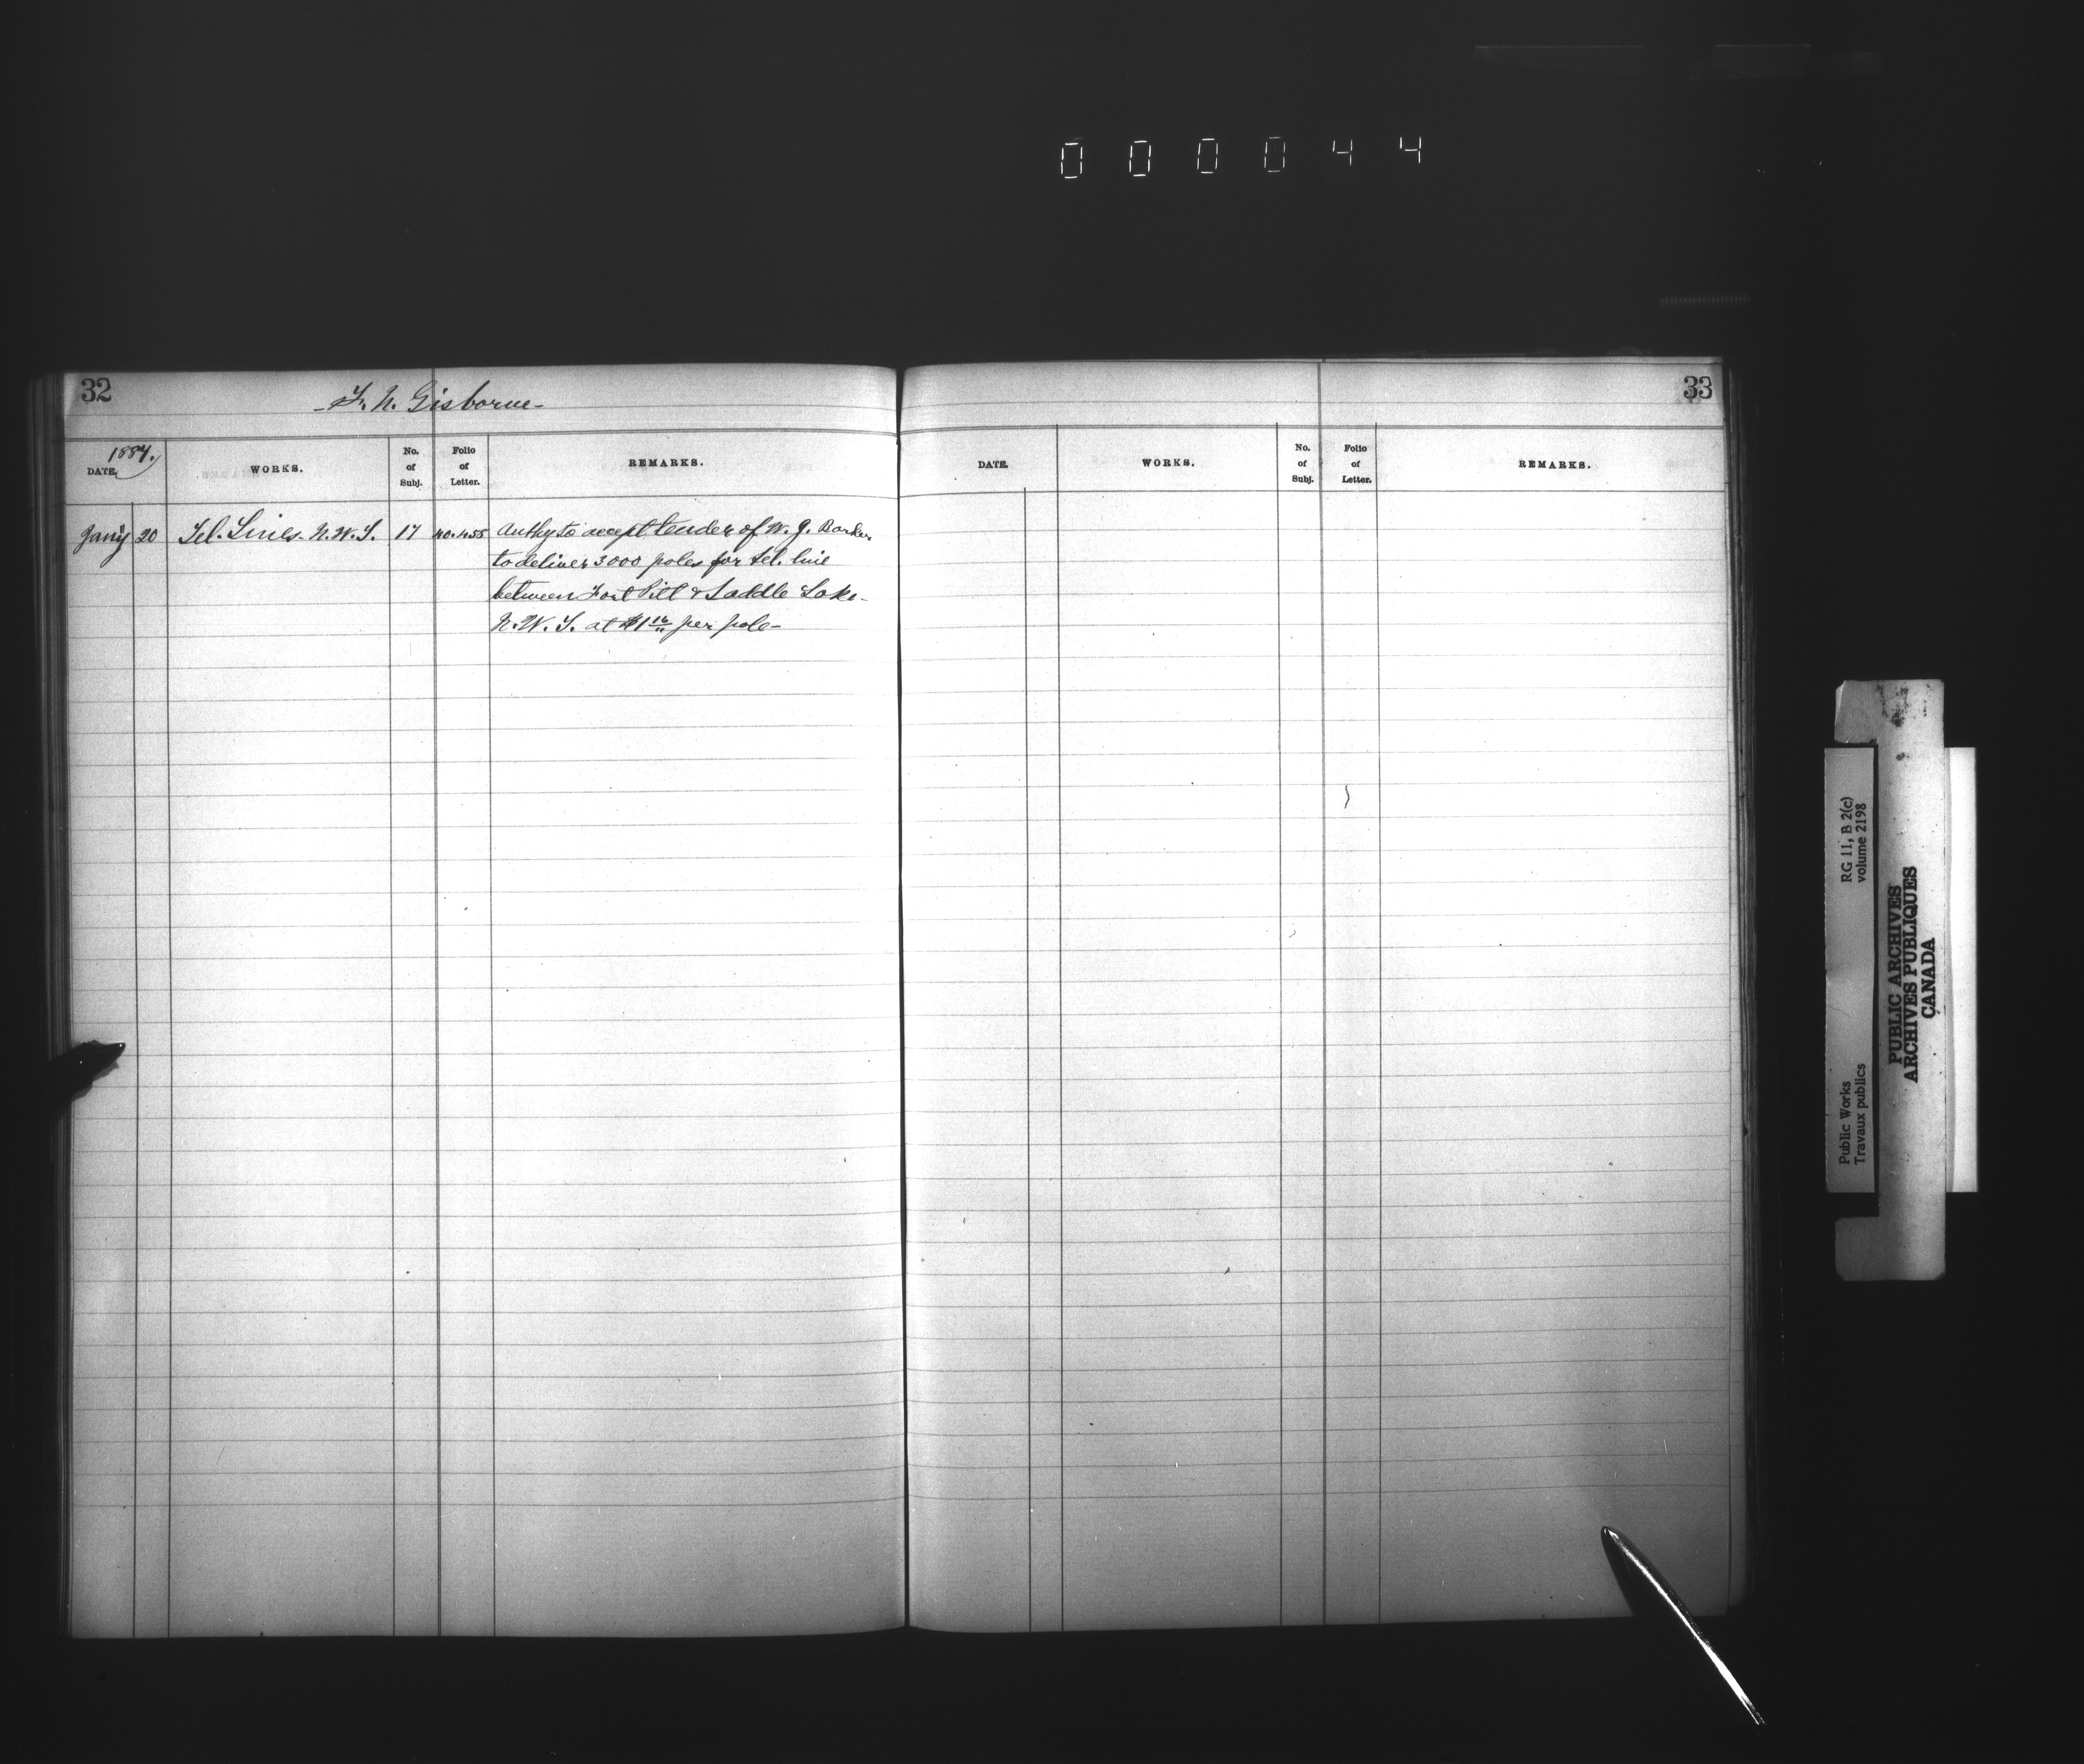 000044
32
- F. N. Gisborne -
1887.
DATE. WORKS. No. of Subj. Folio of Letter. REMARKS.
Jan'y 20 Tel. Lines - N.W.T. 17 Auth'y to accept tender of W. J. Barker
to deliver 3000 poles for tel. line
between Fort Pitt & Saddle Lake -
N.W.T. at $1 16 per pole -
33
DATE. WORKS. No. of Subj. Folio of Letter. REMARKS.
Public Works
Travaux publics
RG 11, B 2(c)
volume 2198
PUBLIC ARCHIVES
ARCHIVES PUBLIQUES
CANADA